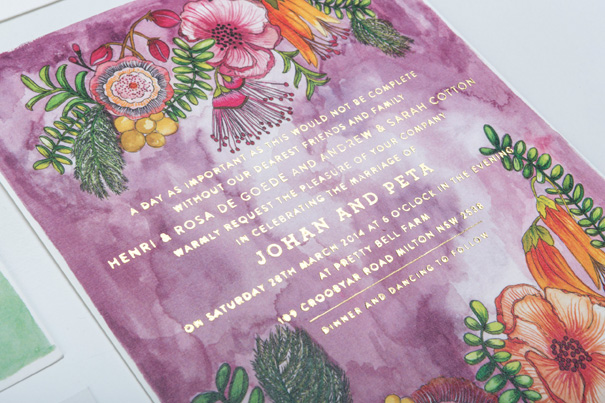 A DAY AS IMPORTANT AS THIS WOULD NOT BE COMPLETE
WITHOUT OUR DEAREST FRIENDS AND FAMILY
HENRI & ROSA DE GOEDE AND ANDREW & SARAH COTTON
WARMLY REQUEST THE PLEASURE OF YOUR COMPANY
IN CELEBRATING THE MARRIAGE OF
JOHAN AND PETA
ON SATURDAY 29TH MARCH 2014 AT 6 O'CLOCK IN THE EVENING
AT PRETTY BELL FARM
109 CROOBYAR ROAD MILTON NSW 2538
DINNER AND DANCING TO FOLLOW